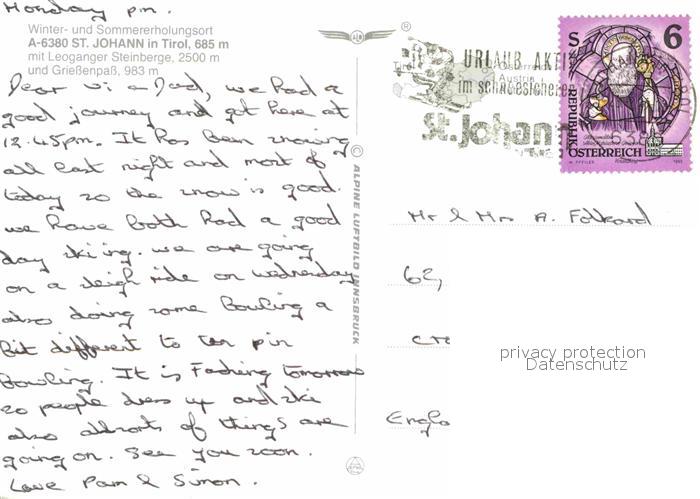 Monday p.m.
Winter- und Sommererholungsort
A-6380 ST. JOHANN in Tirol, 685 m
mit Leoganger Steinberge, 2500 m
und Grießenpaß, 983 m
Dear Vi & Dad, we had a
good journey and got here at
12.45pm. It has been snowing
all last night and most of
today so the snow is good.
we have both had a good
day skiing. we are going
on a sleigh ride on wednesday
also doing some bowling a
bit different to ten pin
bowling. It is Fasching tomorrow
so people dress up and ski
also allsorts of things are
going on. See you soon.
Love Pam & Simon.
© ALPINE LUFTBILD INNSBRUCK
Tirol
Austria
URLAUB AKTI
im schneesicheren
St. Johann
S 6
REPUBLIK
ÖSTERREICH
Mr & Mrs A. Folkard
62,
Engla
privacy protection
Datenschutz